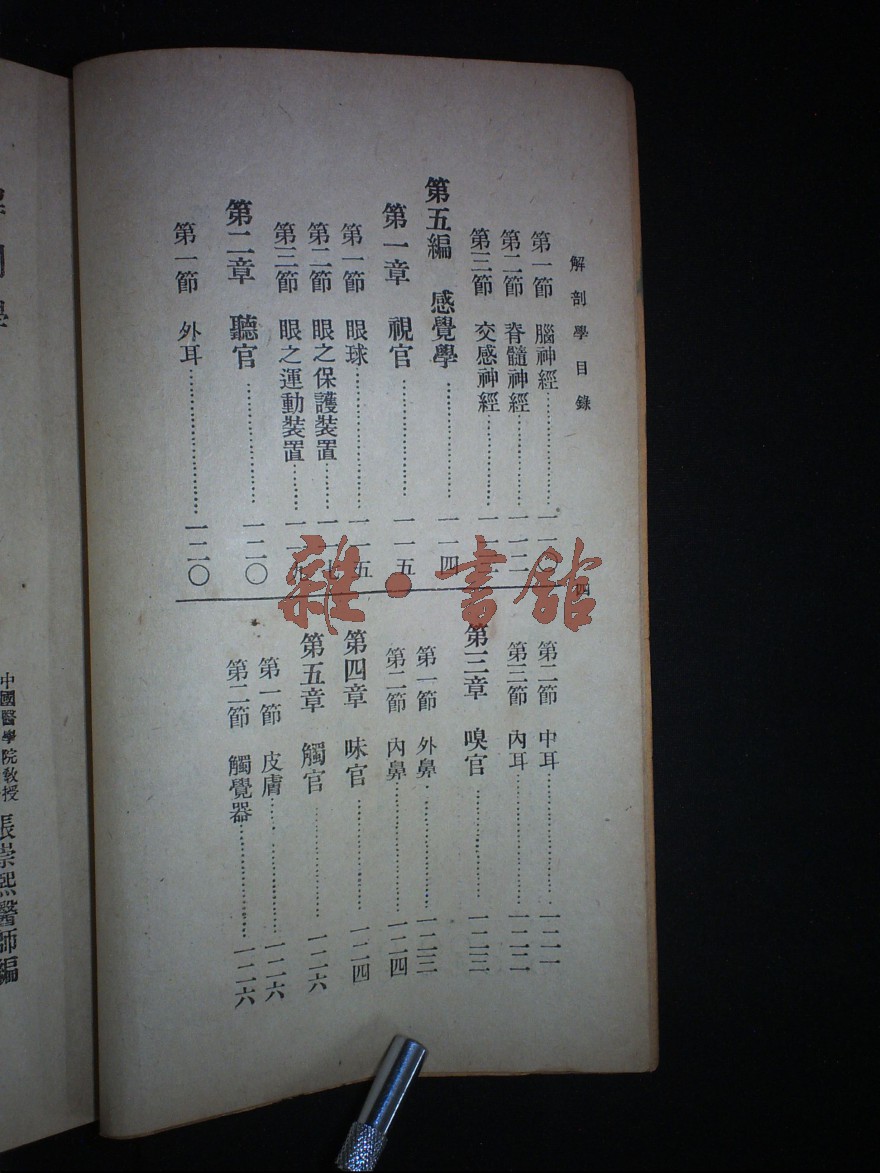 解剖學目錄
四
第一節 腦神經
第二節 脊髓神經
第三節 交感神經
第五編 感覺學 一一四
第一章 視官 一一五
第一節 眼球 一一五
第二節 眼之保護裝置 一一七
第三節 眼之運動裝置 一一九
第二章 聽官 一二〇
第一節 外耳 一二〇
第二節 中耳 一二一
第三節 內耳 一二二
第三章 嗅官 一二三
第一節 外鼻 一二三
第二節 內鼻 一二四
第四章 味官 一二四
第五章 觸官 一二六
第一節 皮膚 一二六
第二節 觸覺器 一二六
雜·書館
中國醫學院教授 張崇熙醫師編